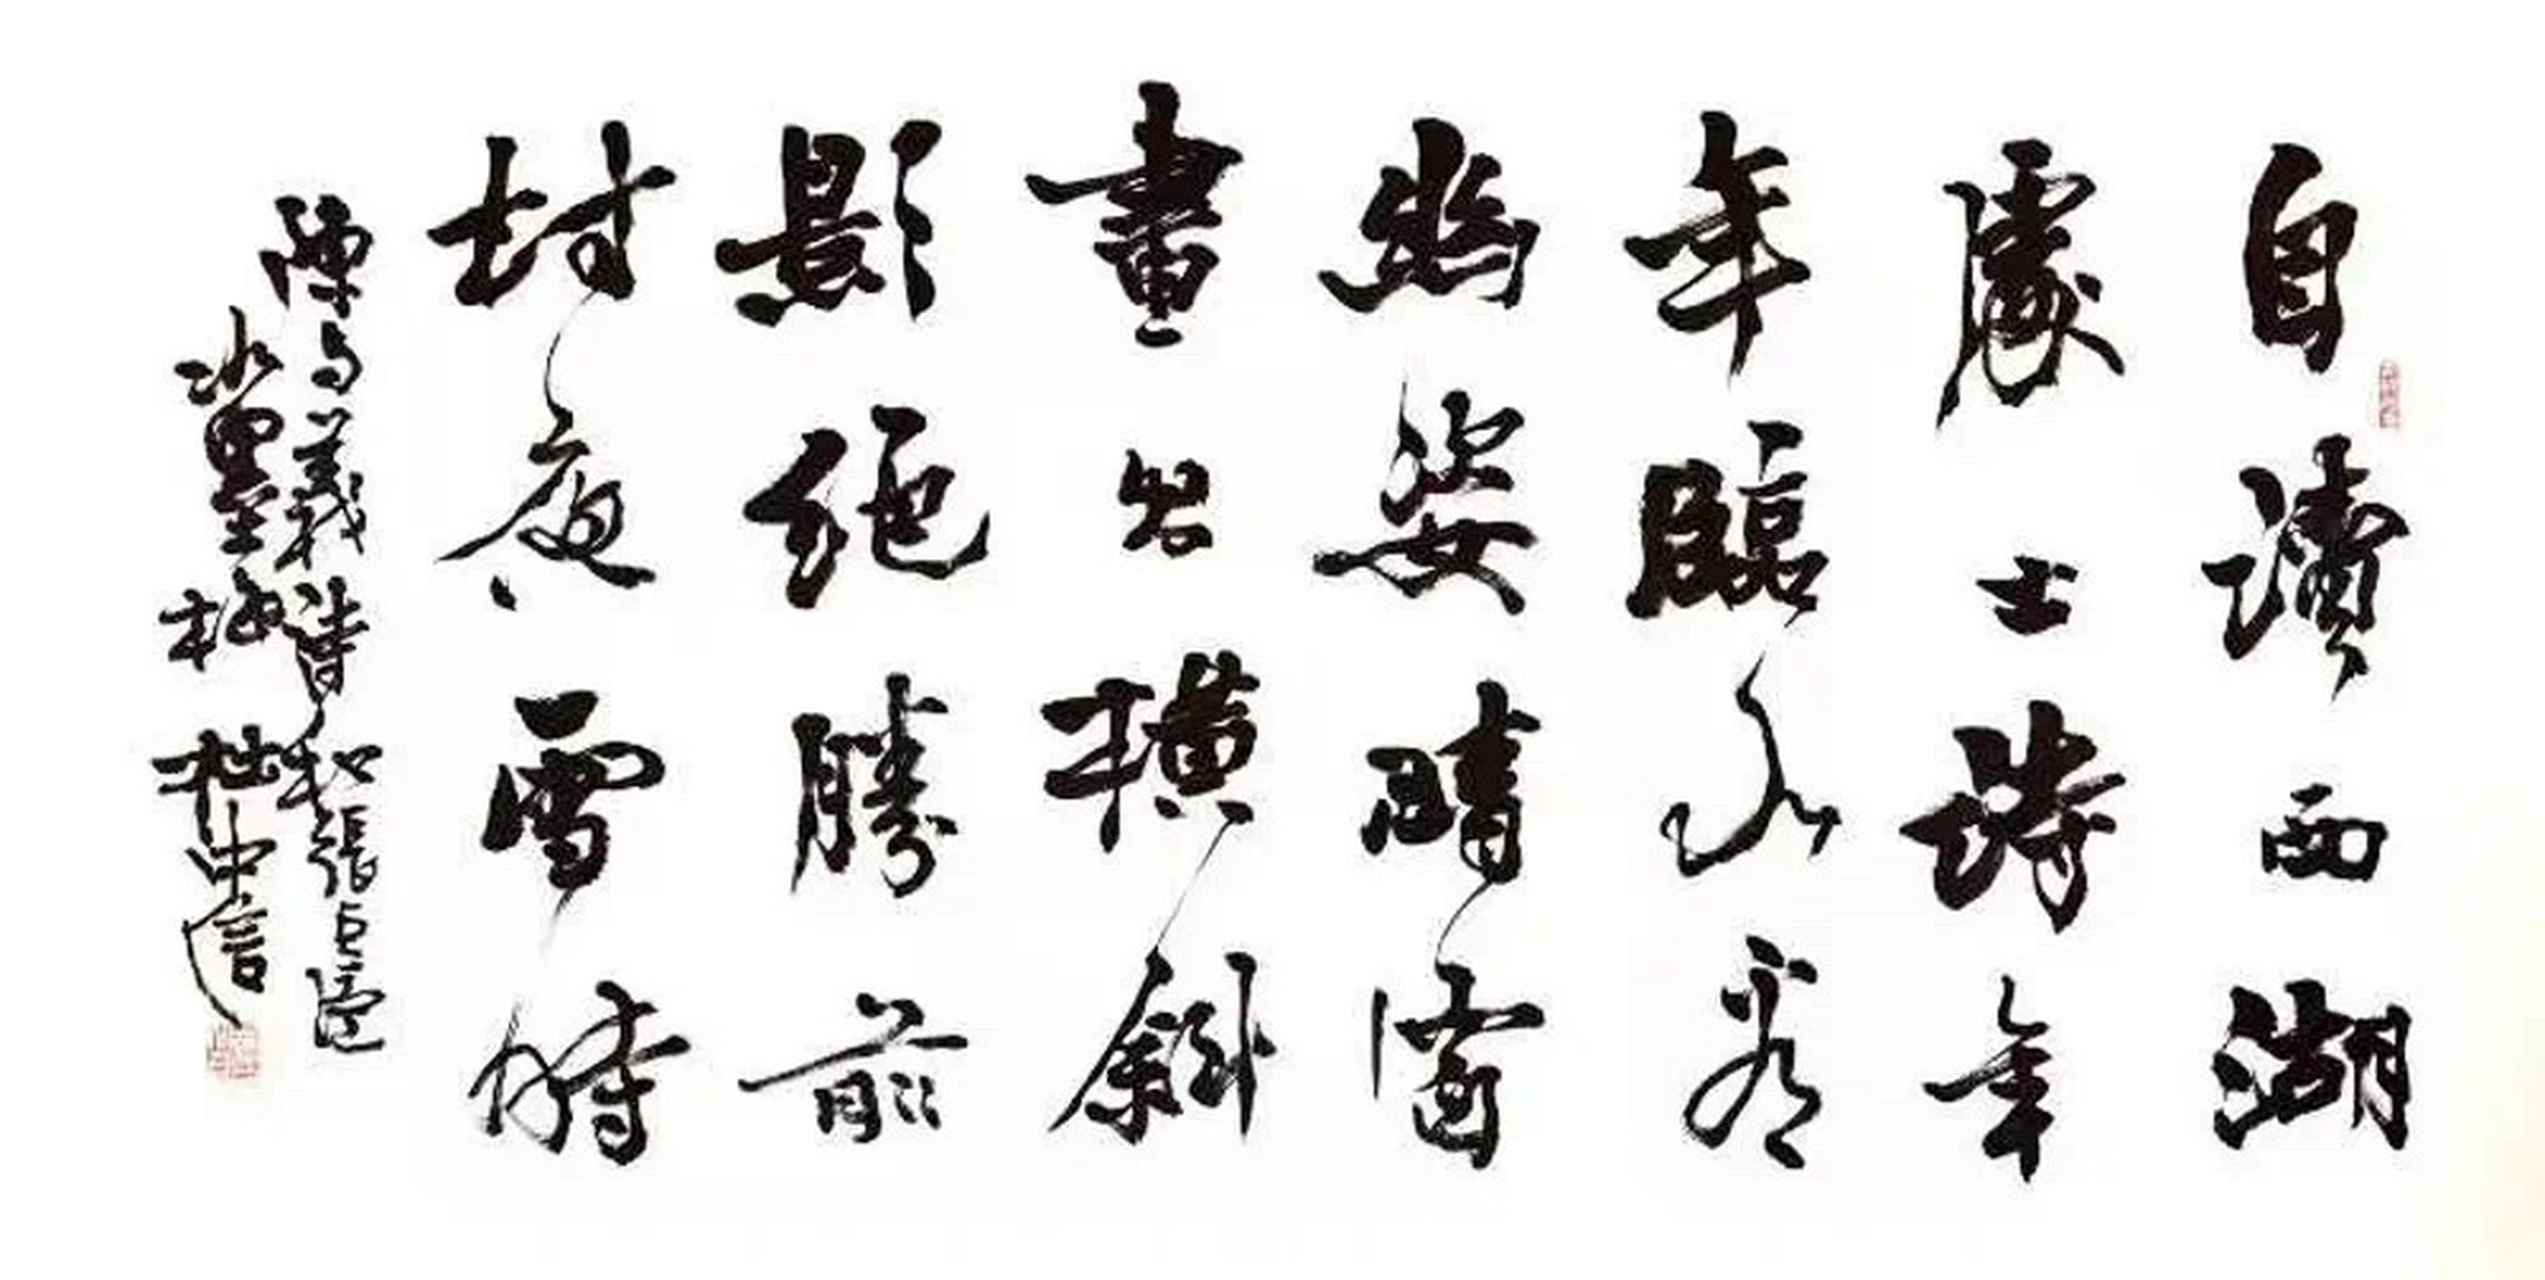 自讀西湖
處士詩年
年臨水看
幽姿晴窗
畫出橫斜
影絕勝前
村夜雪時
陳与義詩和張
水墨梅 中信